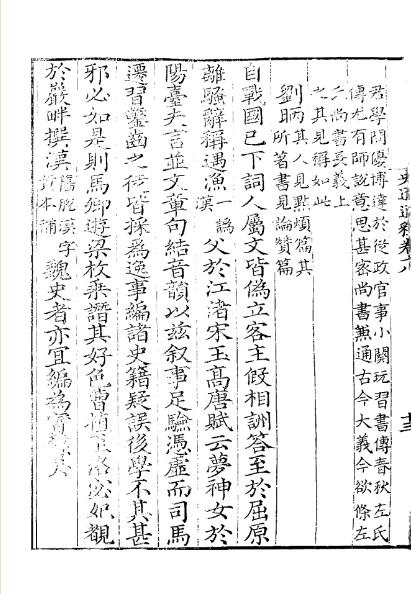 君學問優博達於從政官事小闕玩習書傳春秋左氏
傳尤有師說意思甚密尚書兼通古今大義今欲條左
氏尚書長義上
之其見稱如此
劉昞其人見點煩篇其
所著書見論贊篇
自戰國已下詞人屬文皆偽立客主假相訓答至於屈原
離騷辭稱遇漁
一譌
漢
父於江渚宋玉髙唐賦云夢神女於
陽臺夫言並文章句結音韻以兹叙事足驗憑虛而司馬
遷習鑿齒之徒皆採為逸事編諸史籍疑誤後學不其甚
邪必如是則馬卿遊梁枚乘譖其好色曹植至洛宓妃覩
於巖畔撰漢
舊脫漢字
黄本補
魏史者亦宜編為實錄矣
史通通釋卷十八